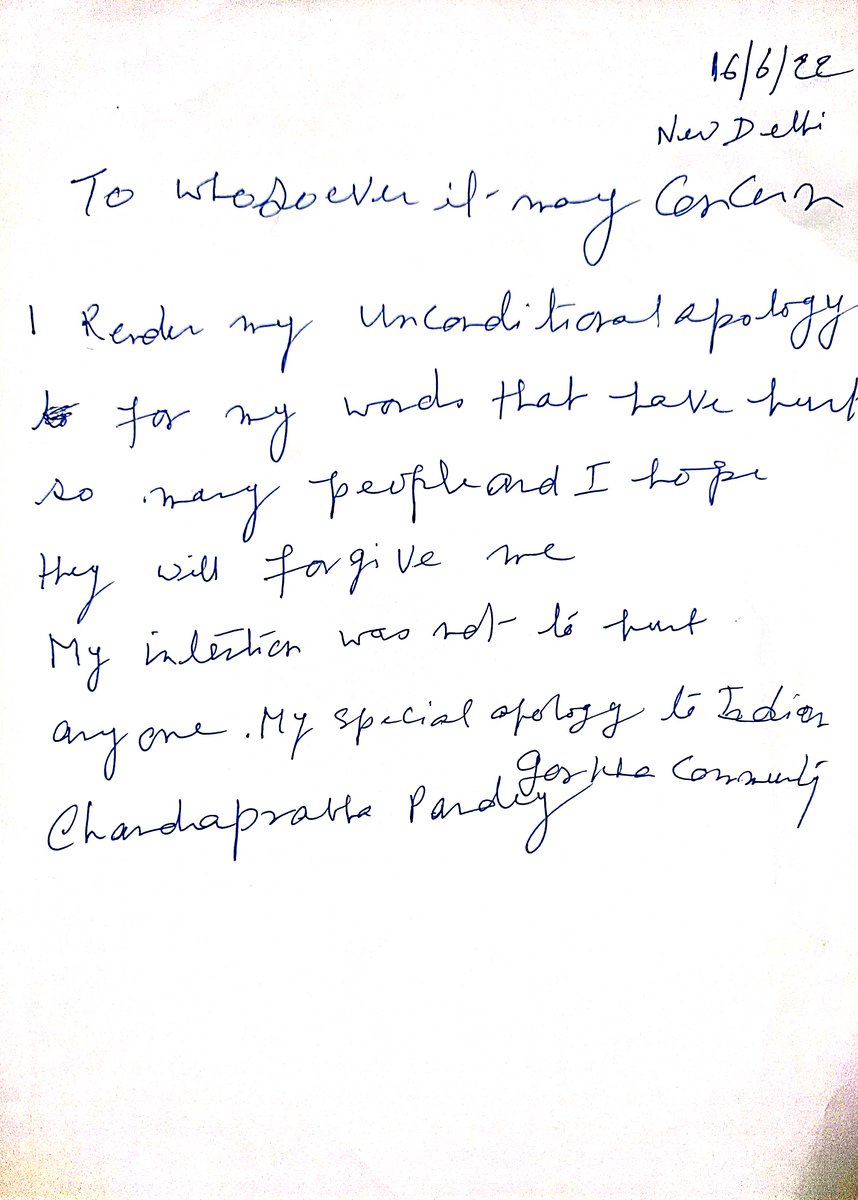 16/6/22
New Delhi
To whosoever it may Concern
I Render my Unconditional apology
for my words that have hurt
so many people and I hope
they will forgive me
My intention was not to hurt
any one. My special apology to Indian
Gorkha Community
Chandraprabha Pandey